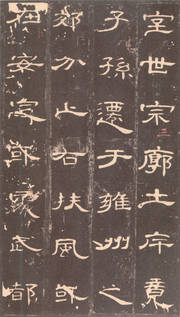 室世宗廓土斥竟
子孫遷于雍州之
郊分止右扶風或
在安定或處武都